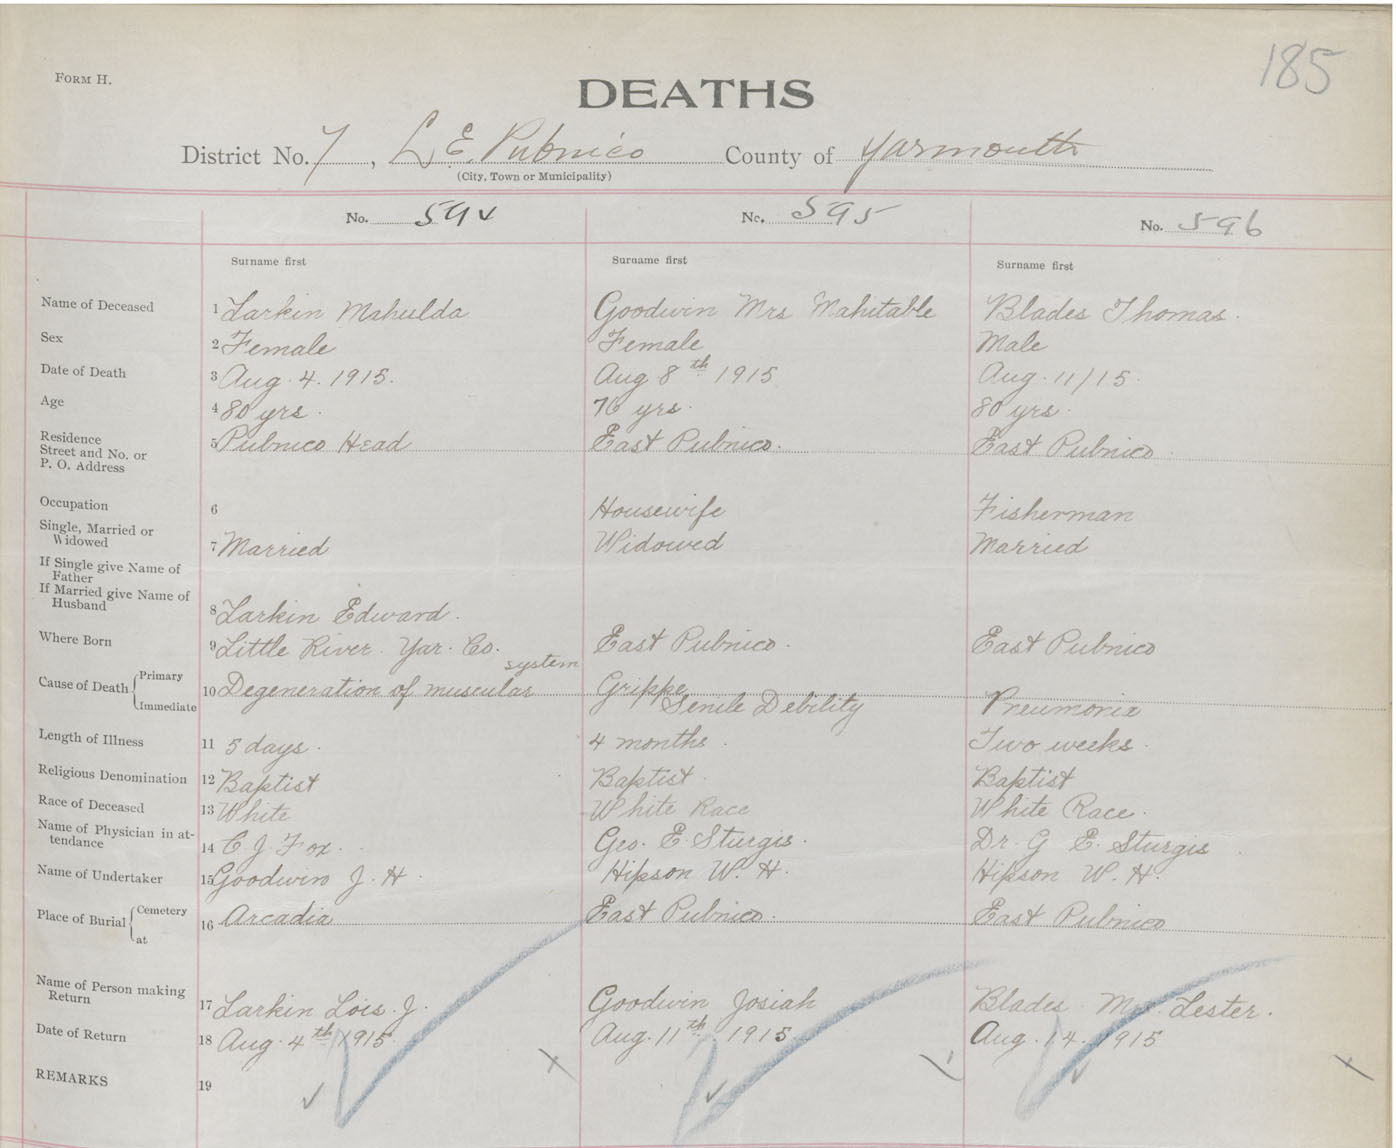 185
FORM H.
DEATHS
District No. 7, L. E. Pubnico County of Yarmouth
(City, Town or Municipality)
No. 594 No. 595 No. 596
Surname first Surname first Surname first
Name of Deceased 1 Larkin Mahulda Goodwin Mrs Mahitable Blades Thomas.
Sex 2 Female Female Male
Date of Death 3 Aug. 4. 1915. Aug 8th 1915 Aug. 11/15.
Age 4 80 yrs. 76 yrs. 80 yrs.
Residence
Street and No. or
P. O. Address 5 Pubnico Head East Pubnico. East Pubnico.
Occupation 6 Housewife Fisherman
Single, Married or
Widowed 7 Married Widowed Married
If Single give Name of
Father
If Married give Name of
Husband 8 Larkin Edward.
Where Born 9 Little River. Yar. Co. East Pubnico. East Pubnico
system
Cause of Death Primary 10 Degeneration of muscular Grippe
Immediate Senile Debility Pneumonia
Length of Illness 11 5 days. 4 months. Two weeks.
Religious Denomination 12 Baptist Baptist. Baptist
Race of Deceased 13 White White Race White Race.
Name of Physician in at-
tendance 14 C. J. Fox. Geo. E. Sturgis. Dr. G E. Sturgis.
Name of Undertaker 15 Goodwin J. H. Hipson W. H. Hipson W. H.
Place of Burial Cemetery 16 Arcadia East Pubnico. East Pubnico
at
Name of Person making
Return 17 Larkin Lois J. Goodwin Josiah Blades Mrs. Lester.
Date of Return 18 Aug. 4th 1915 Aug. 11th 1915 Aug. 14. 1915
REMARKS 19